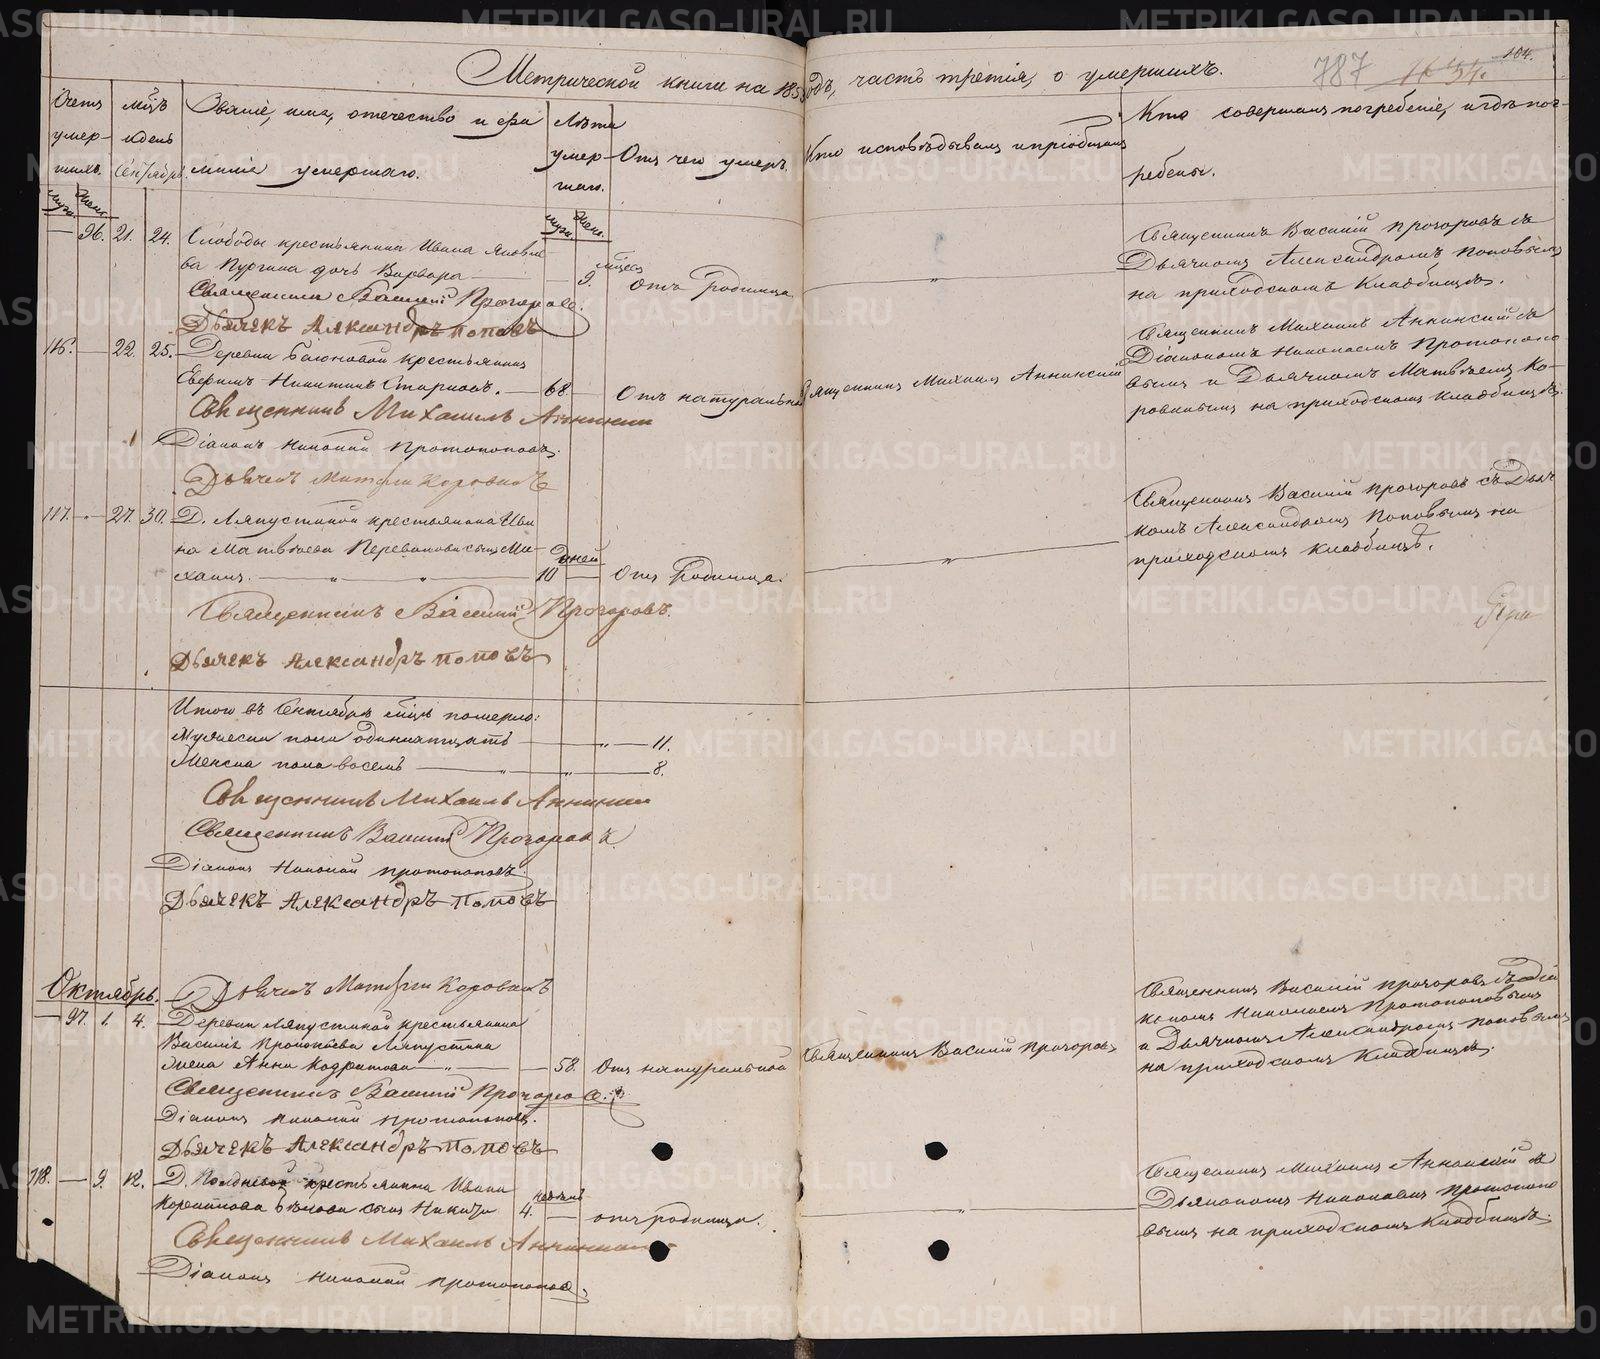 Метрической книги на 185 одъ, часть третія, о умершихъ.
787
184.
Счетъ умер-шихъ.
муж. жен.
Мѣсяцъ и день
Сентябрь
Званіе, имя, отечество и фамилія умершаго.
Лѣта умер-шаго.
муж. жен.
Отъ чего умеръ.
Кто исповѣдывалъ и пріобщалъ
Кто совершалъ погребеніе, и гдѣ погребены.
— 96. 21. 24. Слободы крестьянина Ивана Яковле
ва Пургина дочь Варвара — 9. мѣсец
Отъ родимца
Священникъ Василій Прозоровъ съ
Дьячкомъ Александромъ Поповымъ
на приходскомъ кладбищѣ.
Священникъ Василій Прозоровъ.
Дьячекъ Александръ Поповъ
116. — 22. 25. Деревни крестьянинъ
Никитинъ — 68 —
Отъ натуральной
Священникъ Михаилъ Аннинскій
Священникъ Михаилъ Аннинскій съ
Діакономъ Николаемъ Протопопо
вымъ и Дьячкомъ Матвѣемъ Ко-
ровинымъ на приходскомъ кладбищѣ.
Священникъ Михаилъ Аннинскій
Діаконъ Николай Протопоповъ.
Дьячекъ Матфей Коровинъ
117. — 27. 30. Д. Ляпустиной крестьянина Ива
на Матвѣева сынъ Ми-
хаилъ. — 10 дней —
Отъ родимца.
Священникъ Василій Прозоровъ съ Дьяч
комъ Александромъ Поповымъ на
приходскомъ кладбищѣ.
Священникъ Василій Прозоровъ.
Дьячекъ Александръ Поповъ
Итого въ Сентябрѣ мѣцѣ померло:
Мужеска пола одиннатцать — " — 11.
Женска пола восемь — " — 8.
Священникъ Михаилъ Аннинскій
Священникъ Василій Прозоровъ
Діаконъ Николай Протопоповъ
Дьячекъ Александръ Поповъ
Дьячекъ Матфей Коровинъ
Октябрь.
— 97. 1. 4. Деревни Ляпустиной крестьянина
Василья Прокопьева Ляпустина
жена Анна — " — 58.
Отъ натуральной
Священникъ Василій Прозоровъ
Священникъ Василій Прозоровъ съ Діа
кономъ Николаемъ Протопоповымъ
и Дьячкомъ Александромъ Поповымъ
на приходскомъ кладбищѣ.
Священникъ Василій Прозоровъ.
Діаконъ Николай Протопоповъ.
Дьячекъ Александръ Поповъ
118. — 9. 12. Д. Полдневой крестьянина Ивана
сынъ Никита 4. недѣль —
отъ родимца.
Священникъ Михаилъ Аннинскій съ
Діакономъ Николаемъ Протопопо
вымъ на приходскомъ кладбищѣ.
Священникъ Михаилъ Аннинскій
Діаконъ Николай Протопоповъ.
METRIKI.GASO-URAL.RU